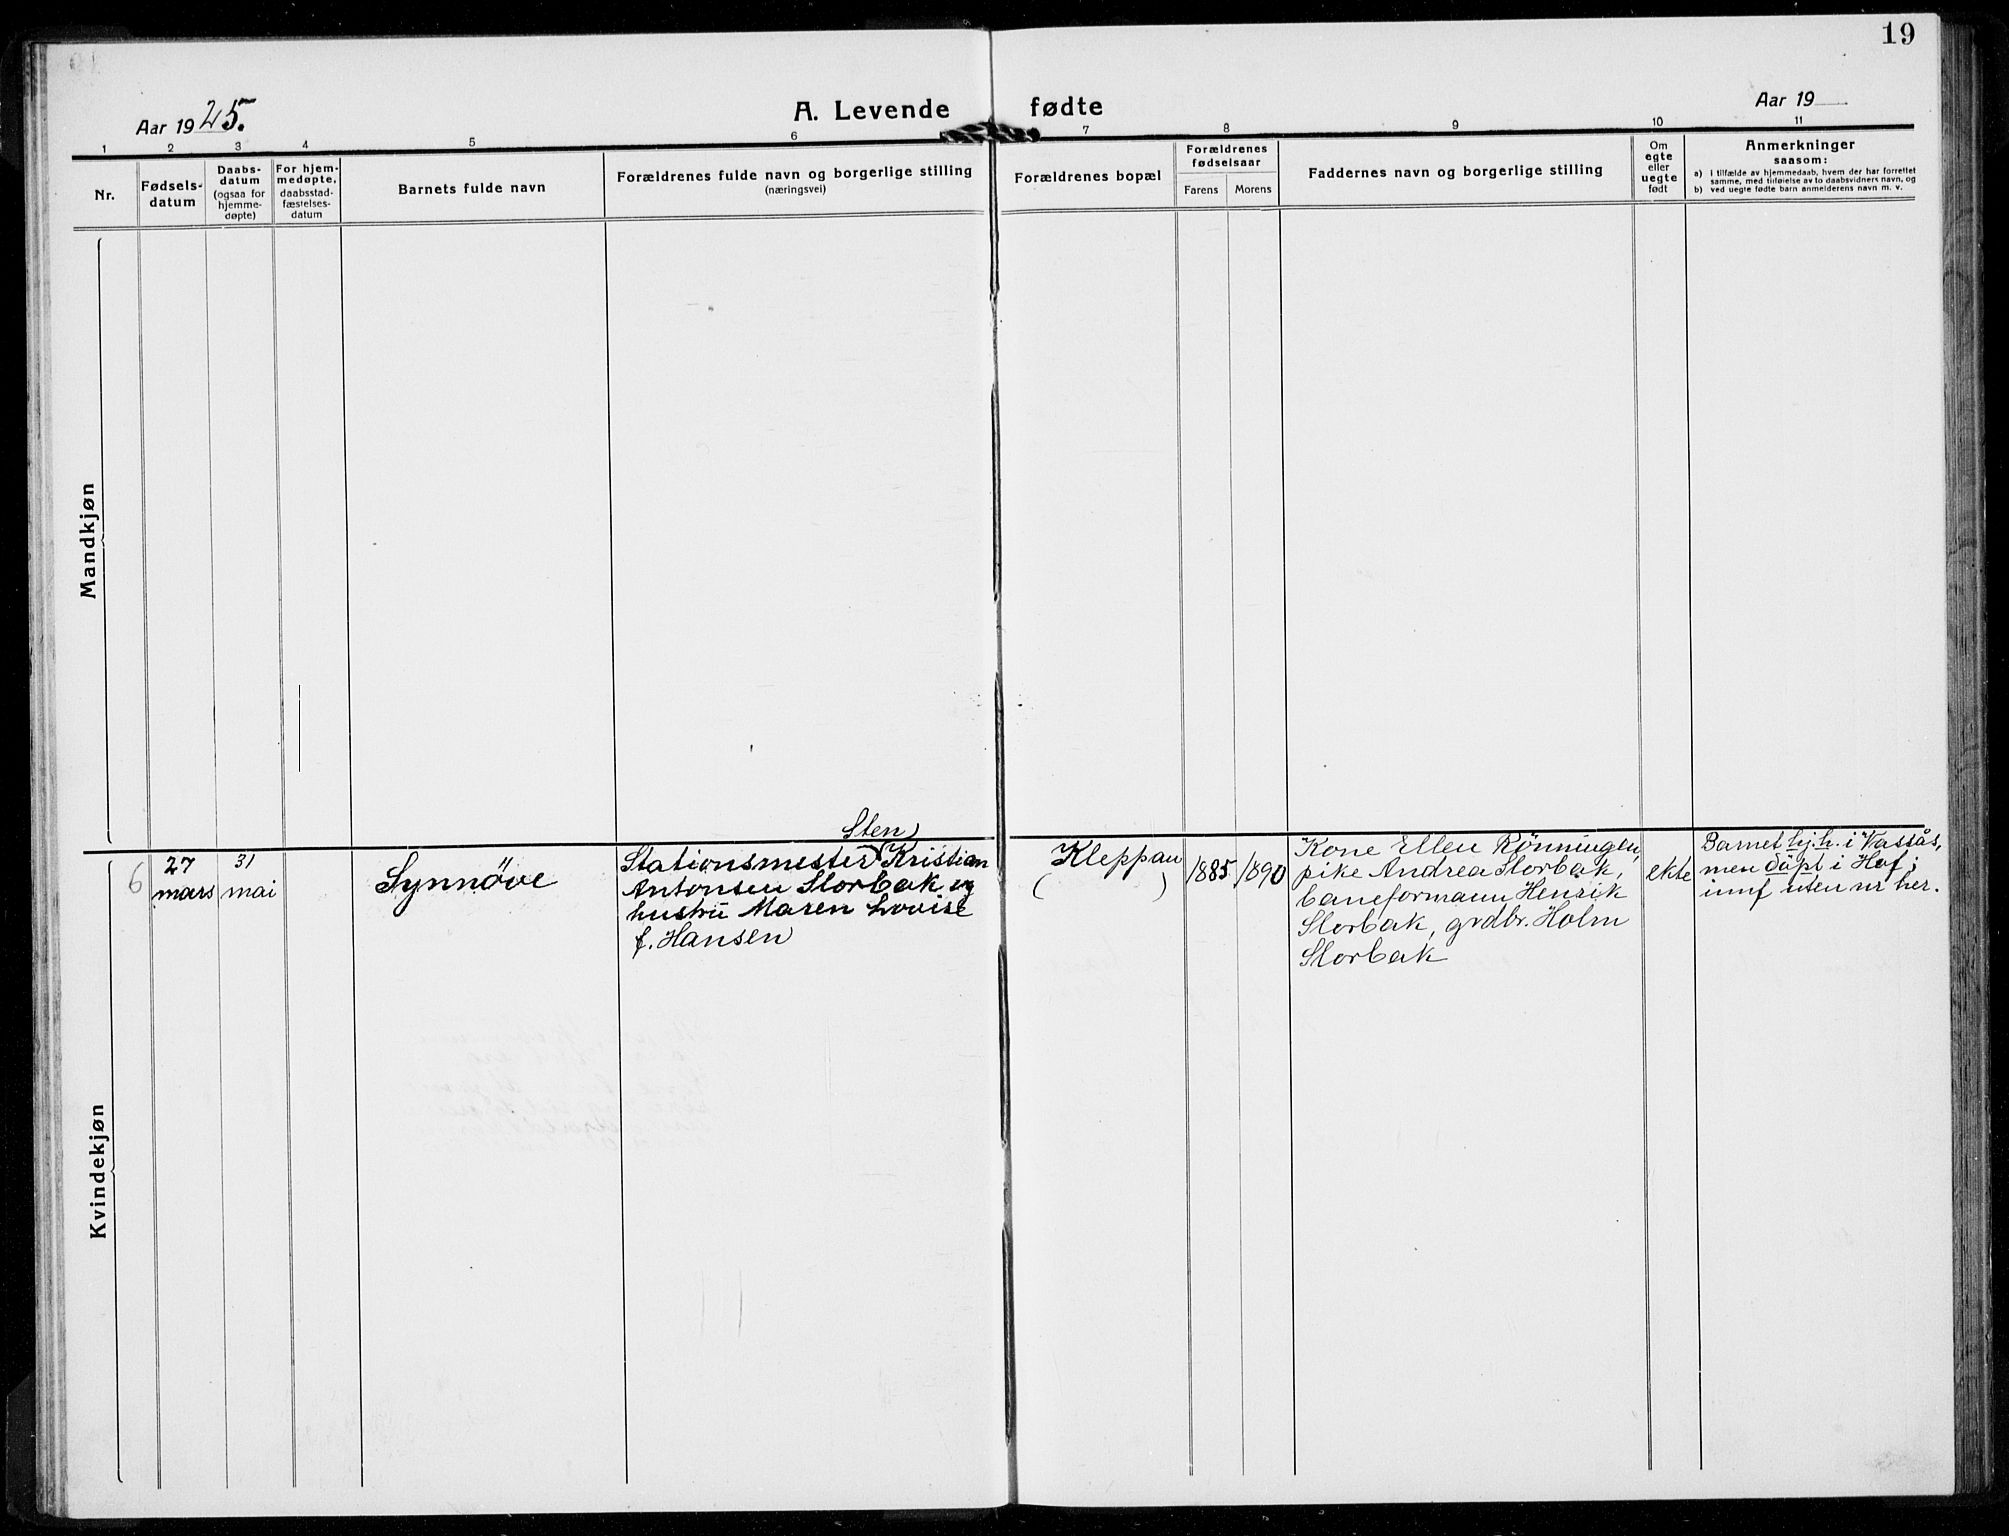 19
Aar 1925.
A. Levende fødte
Aar 19
1 2 3 4 5 6 7 8 9 10 11
Nr.
Fødsels-
datum
Daabs-
datum
(ogsaa for
hjemme-
døpte)
For hjem-
medøpte,
daabsstad-
fæstelses-
datum
Barnets fulde navn
Forældrenes fulde navn og borgerlige stilling
(næringsvei)
Forældrenes bopæl
Forældrenes
fødselsaar
Farens Morens
Faddernes navn og borgerlige stilling
Om
egte
eller
uegte
født
Anmerkninger
saasom:
a) i tilfælde av hjemmedaab, hvem der har forrettet
samme, med tilføielse av to daabsvidners navn, og
b) ved uegte fødte barn anmelderens navn m. v.
Mandkjøn
Kvindekjøn
6
27
mars
31
mai
Synnöve
Sten
Stationsmester Kristian
Antonsen Storbæk og
hustru Maren Lovise
f. Hansen
Kleppan
( )
1885
1890
Kone Ellen Rönningen,
pike Andrea Storbæk,
baneformann Henrik
Storbæk, grdbr. Holm
Storbæk
ekte
Barnet hj.h. i Vassås,
men döpt i Hof;
innf uten nr her.